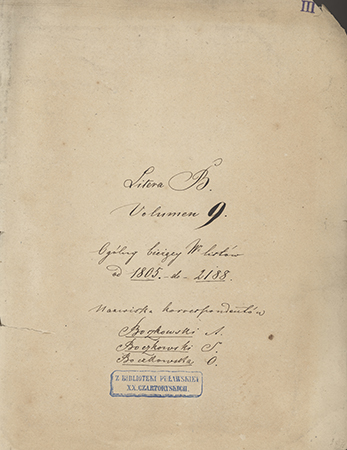 III
Litera B.
Volumen 9.
Ogólny bieżący № listów
od 1805. do 2188.
Nazwiska korrespondentów
Boczkowski A.
Boczkowski S.
Boczkowska O.
Z BIBLIOTEKI PUŁAWSKIEJ
XX. CZARTORYSKICH.